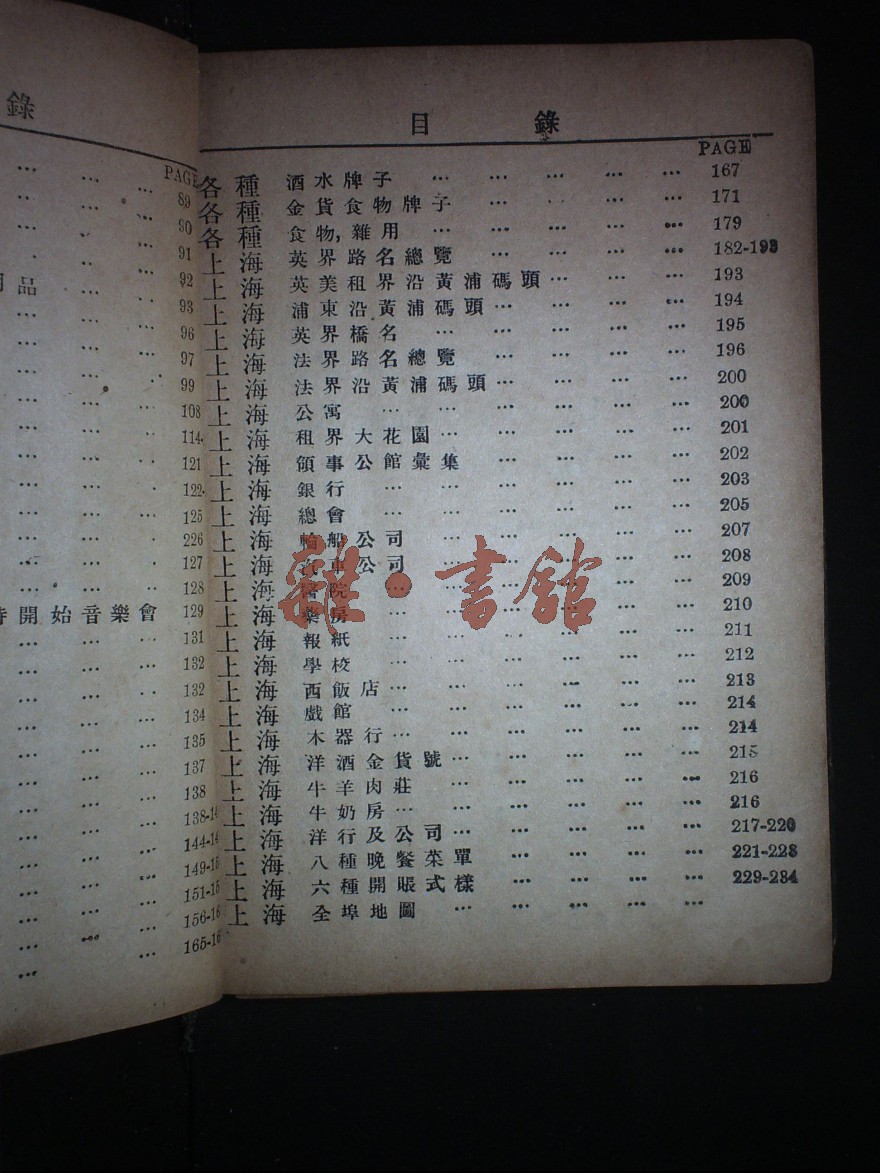 錄
PAGE
... ... ... 89
... ... ... 90
. .. . 91
用品 ... .. 92
... ... ... 93
... ... .. 96
... ... . 97
... ... .. 99
... ... .. 108
... ... .. 114
... ... .. 121
... ... .. 122
... ... ... 125
... ... .. 226
... ... .. 127
... ... .. 128
時開始音樂會 129
... ... ... 131
... ... .. 132
... ... .. 132
... ... ... 134
... ... ... 135
... ... ... 137
... ... ... 138
... ... ... 138-14
... ... ... 144-14
... ... ... 149-15
... ... ... 151-15
... ... ... 156-16
... ... ... 165-16
目 錄
PAGE
各種 酒水牌子 ... ... ... ... ... 167
各種 金貨食物牌子 ... ... ... ... 171
各種 食物,雜用 ... ... ... ... ... 179
上海 英界路名總覽 ... ... ... ... 182-193
上海 英美租界沿黃浦碼頭... ... ... ... 193
上海 浦東沿黃浦碼頭... ... ... ... 194
上海 英界橋名 ... ... ... ... ... 195
上海 法界路名總覽 ... ... ... ... 196
上海 法界沿黃浦碼頭... ... ... ... 200
上海 公寓 ... ... ... ... ... ... 200
上海 租界大花園... ... ... ... ... 201
上海 領事公館彙集 ... ... ... ... 202
上海 銀行 ... ... ... ... ... ... 203
上海 總會 ... ... ... ... ... ... 205
上海 輪船公司 ... ... ... ... ... 207
上海 汽車公司 ... ... ... ... ... 208
上海 醫院 ... ... ... ... ... ... 209
上海 藥房 ... ... ... ... ... ... 210
上海 報紙 ... ... ... ... ... ... 211
上海 學校 ... ... ... ... ... ... 212
上海 西飯店... ... ... ... ... ... 213
上海 戲館 ... ... ... ... ... ... 214
上海 木器行... ... ... ... ... ... 214
上海 洋酒金貨號... ... ... ... ... 215
上海 牛羊肉莊 ... ... ... ... ... 216
上海 牛奶房... ... ... ... ... ... 216
上海 洋行及公司... ... ... ... ... 217-220
上海 八種晚餐菜單 ... ... ... ... 221-228
上海 六種開賬式樣 ... ... ... ... 229-234
上海 全埠地圖 ... ... ... ... ...
雜·書館